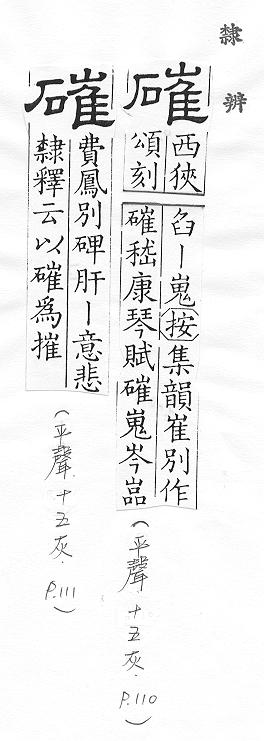 隸辨
磪
西狹
頌刻
臽丨嵬按集韻崔別作
磪嵇康琴賦磪嵬岑嵓
(平聲.十五灰.P.110)
磪
費鳳別碑肝丨意悲
隸釋云以磪爲摧
(平聲.十五灰.P.111)